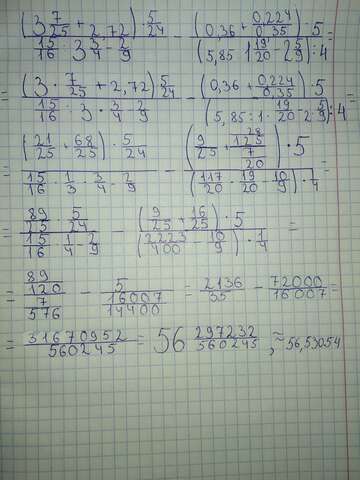 (3 7/25 + 2,72) · 5/24 / 15/16 : 3 3/4 - 2/9 - (0,36 + 0,224/0,35) · 5 / (5,85 · 1 19/20 - 2 5/9) : 4 =
= (3 · 7/25 + 2,72) 5/24 / 15/16 · 3 · 3/4 - 2/9 - (0,36 + 0,224/0,35) · 5 / (5,85 : 1 · 19/20 - 2 · 5/9) : 4 =
= (21/25 + 68/25) · 5/24 / 15/16 · 1/3 · 3/4 - 2/9 - (9/25 + 28/125 / 7/20) · 5 / (117/20 · 19/20 - 10/9) · 1/4 =
= 89/25 · 5/24 / 15/16 · 1/4 - 2/9 - (9/25 + 16/25) · 5 / (2223/400 - 10/9) · 1/4 =
= 89/120 / 7/576 - 5 / 16007/14400 = 2136/35 - 72000/16007 =
= 31670952/560245 = 56 297232/560245, ≈ 56,53054